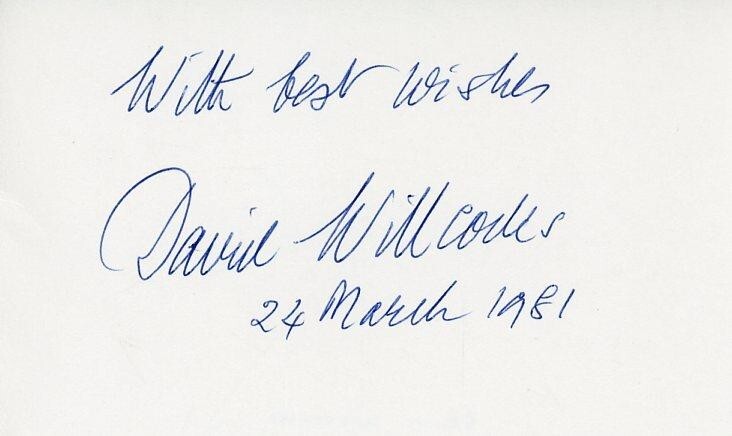 With best wishes
David Willcocks
24 March 1981